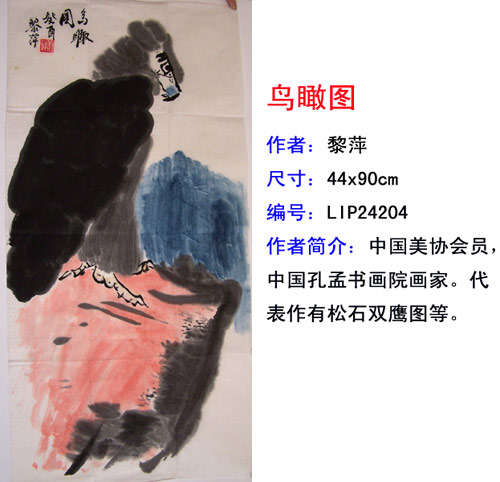 鸟瞰
图
癸酉
黎萍
鸟瞰图
作者：黎萍
尺寸：44x90cm
编号：LIP24204
作者简介：中国美协会员，
中国孔孟书画院画家。代
表作有松石双鹰图等。